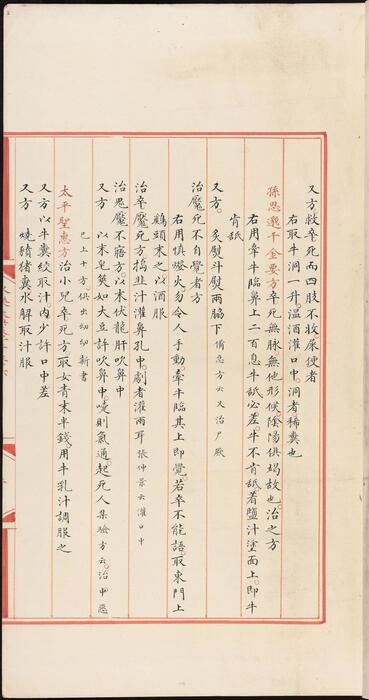 又方救卒死而四肢不收屎便者
右取牛洞一升温酒灌口中。洞者稀糞也
孫思邈千金要方卒死無脉無他形候。陰陽俱竭故也。治之方
右用牽牛臨鼻上二百息。牛舐必差。牛不肯舐。着鹽汁塗面上。即牛
肯舐
又方。炙熨斗熨兩脇下備急方云又治尸厥
治魘死不自覺者方
右用慎燈火。勿令人手動。牽牛臨其上即覺。若卒不能語。取東門上
鷄頭末之以酒服
治卒魘死方。搗韭汁灌鼻孔中。劇者灌兩耳張仲景云灌口中
治鬼魘不寤方。以末伏龍肝吹鼻中
又方以末皂莢如大豆許吹鼻中。嚏則氣通。起死人集驗方云。治中惡
已上十方。俱出幼幼新書
太平聖惠方治小兒卒死方。取女青末半錢。用牛乳汁調服之
又方以牛糞絞取汁。内少許口中差
又方燒豬猪糞水解取汁服